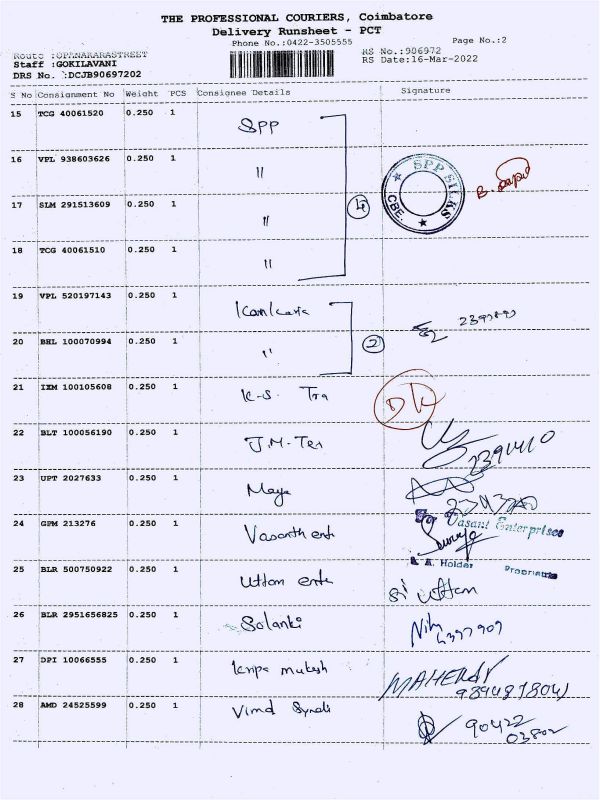 THE PROFESSIONAL COURIERS, Coimbatore
Delivery Runsheet - PCT
Phone No.:0422-3505555
Page No.:2
Route :OPANARARASTREET
RS No.:906972
Staff :GOKILAVANI
RS Date:16-Mar-2022
DRS No. :DCJB90697202
S No Consignment No Weight PCS Consignee Details Signature
15 TCG 40061520 0.250 1 SPP
16 VPL 938603626 0.250 1 "
SPP SILKS
CBE.
17 SLM 291513609 0.250 1 "
4
18 TCG 40061510 0.250 1 "
19 VPL 520197143 0.250 1
20 BHL 100070994 0.250 1 "
2
21 IXM 100105608 0.250 1 K-S. Tra
22 BLT 100056190 0.250 1 J.M-Tra
23 UPT 2027633 0.250 1 Maya
For Vasant Enterprises
24 GPM 213276 0.250 1 Vasanth ent
A. Holder Proprietor
25 BLR 500750922 0.250 1 Uttam ente
Sri Uttam
26 BLR 2951656825 0.250 1 Solanki
27 DPI 10066555 0.250 1 Kripa mukesh
28 AMD 24525599 0.250 1 Vimal
90422
03802